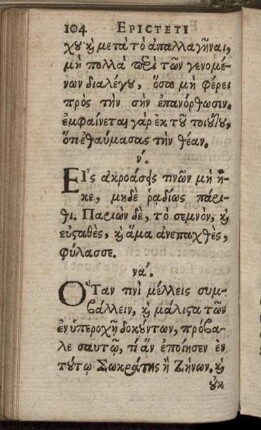 104 EPICTETI
χου ϗ μετὰ τὸ ἀπαλλαγῆναι,
μὴ πολλὰ περὶ τῶν γενομέ-
νων διαλέγου, ὅσα μὴ φέρει
πρὸς τὴν σὴν ἐπανόρθωσιν.
ἐμφαίνεται γὰρ ἐκ τοῦ τοιούτου,
ὅτι ἐθαύμασας τὴν θέαν.
ν΄.
ΕἸς ἀκροάσεις τινῶν μὴ ἧ-
κε, μηδὲ ῥᾳδίως πάρι-
θι. Παριὼν δὲ, τὸ σεμνὸν, ϗ
εὐσταθὲς, ϗ ἅμα ἀνεπαχθὲς,
φύλασσε.
να΄.
ὍΤαν τινὶ μέλλεις συμ-
βάλλειν, ϗ μάλιστα τῶν
ἐν ὑπεροχῇ δοκούντων, πρόβα-
λε σαυτῷ, τί ἂν ἐποίησεν ἐν
τούτῳ Σωκράτης ἢ Ζήνων, ϗ
οὐκ